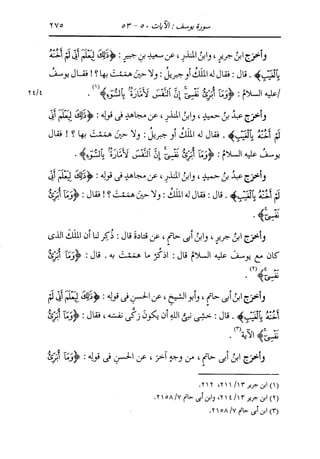 سورة يوسف : الآيات ٥٠ - ٥٣
٢٧٥
وأخرج ابنُ جريرٍ ، وابنُ المنذرِ ، عن سعيدِ بنِ جبيرٍ : ﴿ذَٰلِكَ لِيَعْلَمَ أَنِّي لَمْ أَخُنْهُ
بِالْغَيْبِ﴾ . قال : فقال له الملَكُ أو جبريلُ : ولا حينَ هممْتَ بها ؟! فقال يوسفُ
/عليه السلامُ : ﴿وَمَا أُبَرِّئُ نَفْسِي إِنَّ النَّفْسَ لَأَمَّارَةٌ بِالسُّوءِ﴾ (١) .
٢٤/٤
وأخرج عبدُ بنُ حميدٍ ، وابنُ المنذرِ ، عن مجاهدٍ فى قولِه : ﴿ذَٰلِكَ لِيَعْلَمَ أَنِّي
لَمْ أَخُنْهُ بِالْغَيْبِ﴾ . فقال له الملَكُ أو جبريلُ : ولا حينَ هممْتَ بها ؟! فقال
يوسفُ عليه السلامُ : ﴿وَمَا أُبَرِّئُ نَفْسِي إِنَّ النَّفْسَ لَأَمَّارَةٌ بِالسُّوءِ﴾ .
وأخرج عبدُ بنُ حميدٍ ، وابنُ المنذرِ ، عن مجاهدٍ فى قولِه : ﴿ذَٰلِكَ لِيَعْلَمَ أَنِّي
لَمْ أَخُنْهُ بِالْغَيْبِ﴾ . قال : فقال له الملكُ : ولا حينَ هممْتَ ؟! فقال : ﴿وَمَا أُبَرِّئُ
نَفْسِي﴾ .
وأخرج ابنُ جريرٍ ، وابنُ أبى حاتمٍ ، عن قتادةَ قال : ذُكِر لنا أن الملَكَ الذى
كان مع يوسفَ عليه السلامُ قال : اذكُرْ ما هممْتَ به . قال : ﴿وَمَا أُبَرِّئُ
نَفْسِي﴾ (٢) .
وأخرج ابنُ أبى حاتمٍ ، وأبو الشيخِ ، عن الحسنِ فى قولِه : ﴿ذَٰلِكَ لِيَعْلَمَ أَنِّي لَمْ
أَخُنْهُ بِالْغَيْبِ﴾ . قال : خشِى نبىُّ اللهِ أن يكونَ زكَّى نفسَه ، فقال : ﴿وَمَا أُبَرِّئُ
نَفْسِي﴾ الآية (٣) .
وأخرج ابنُ أبى حاتمٍ ، من وجهٍ آخرَ ، عن الحسنِ فى قولِه : ﴿وَمَا أُبَرِّئُ
(١) ابن جرير ١٣/ ٢١١، ٢١٢.
(٢) ابن جرير ١٣/ ٢١٤، وابن أبى حاتم ٧/ ٢١٥٨.
(٣) ابن أبى حاتم ٧/ ٢١٥٨.